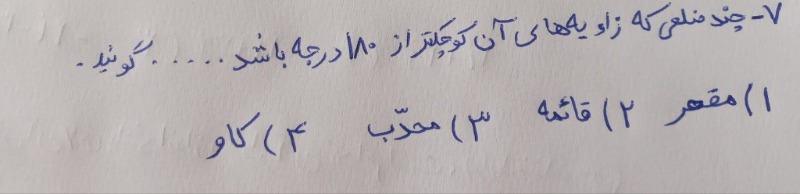 ۷- چند ضلعی که زاویه‌های آن کوچکتر از ۱۸۰ درجه باشد ..... گویند.
۱) مقعر ۲) قائمه ۳) محدّب ۴) کاو